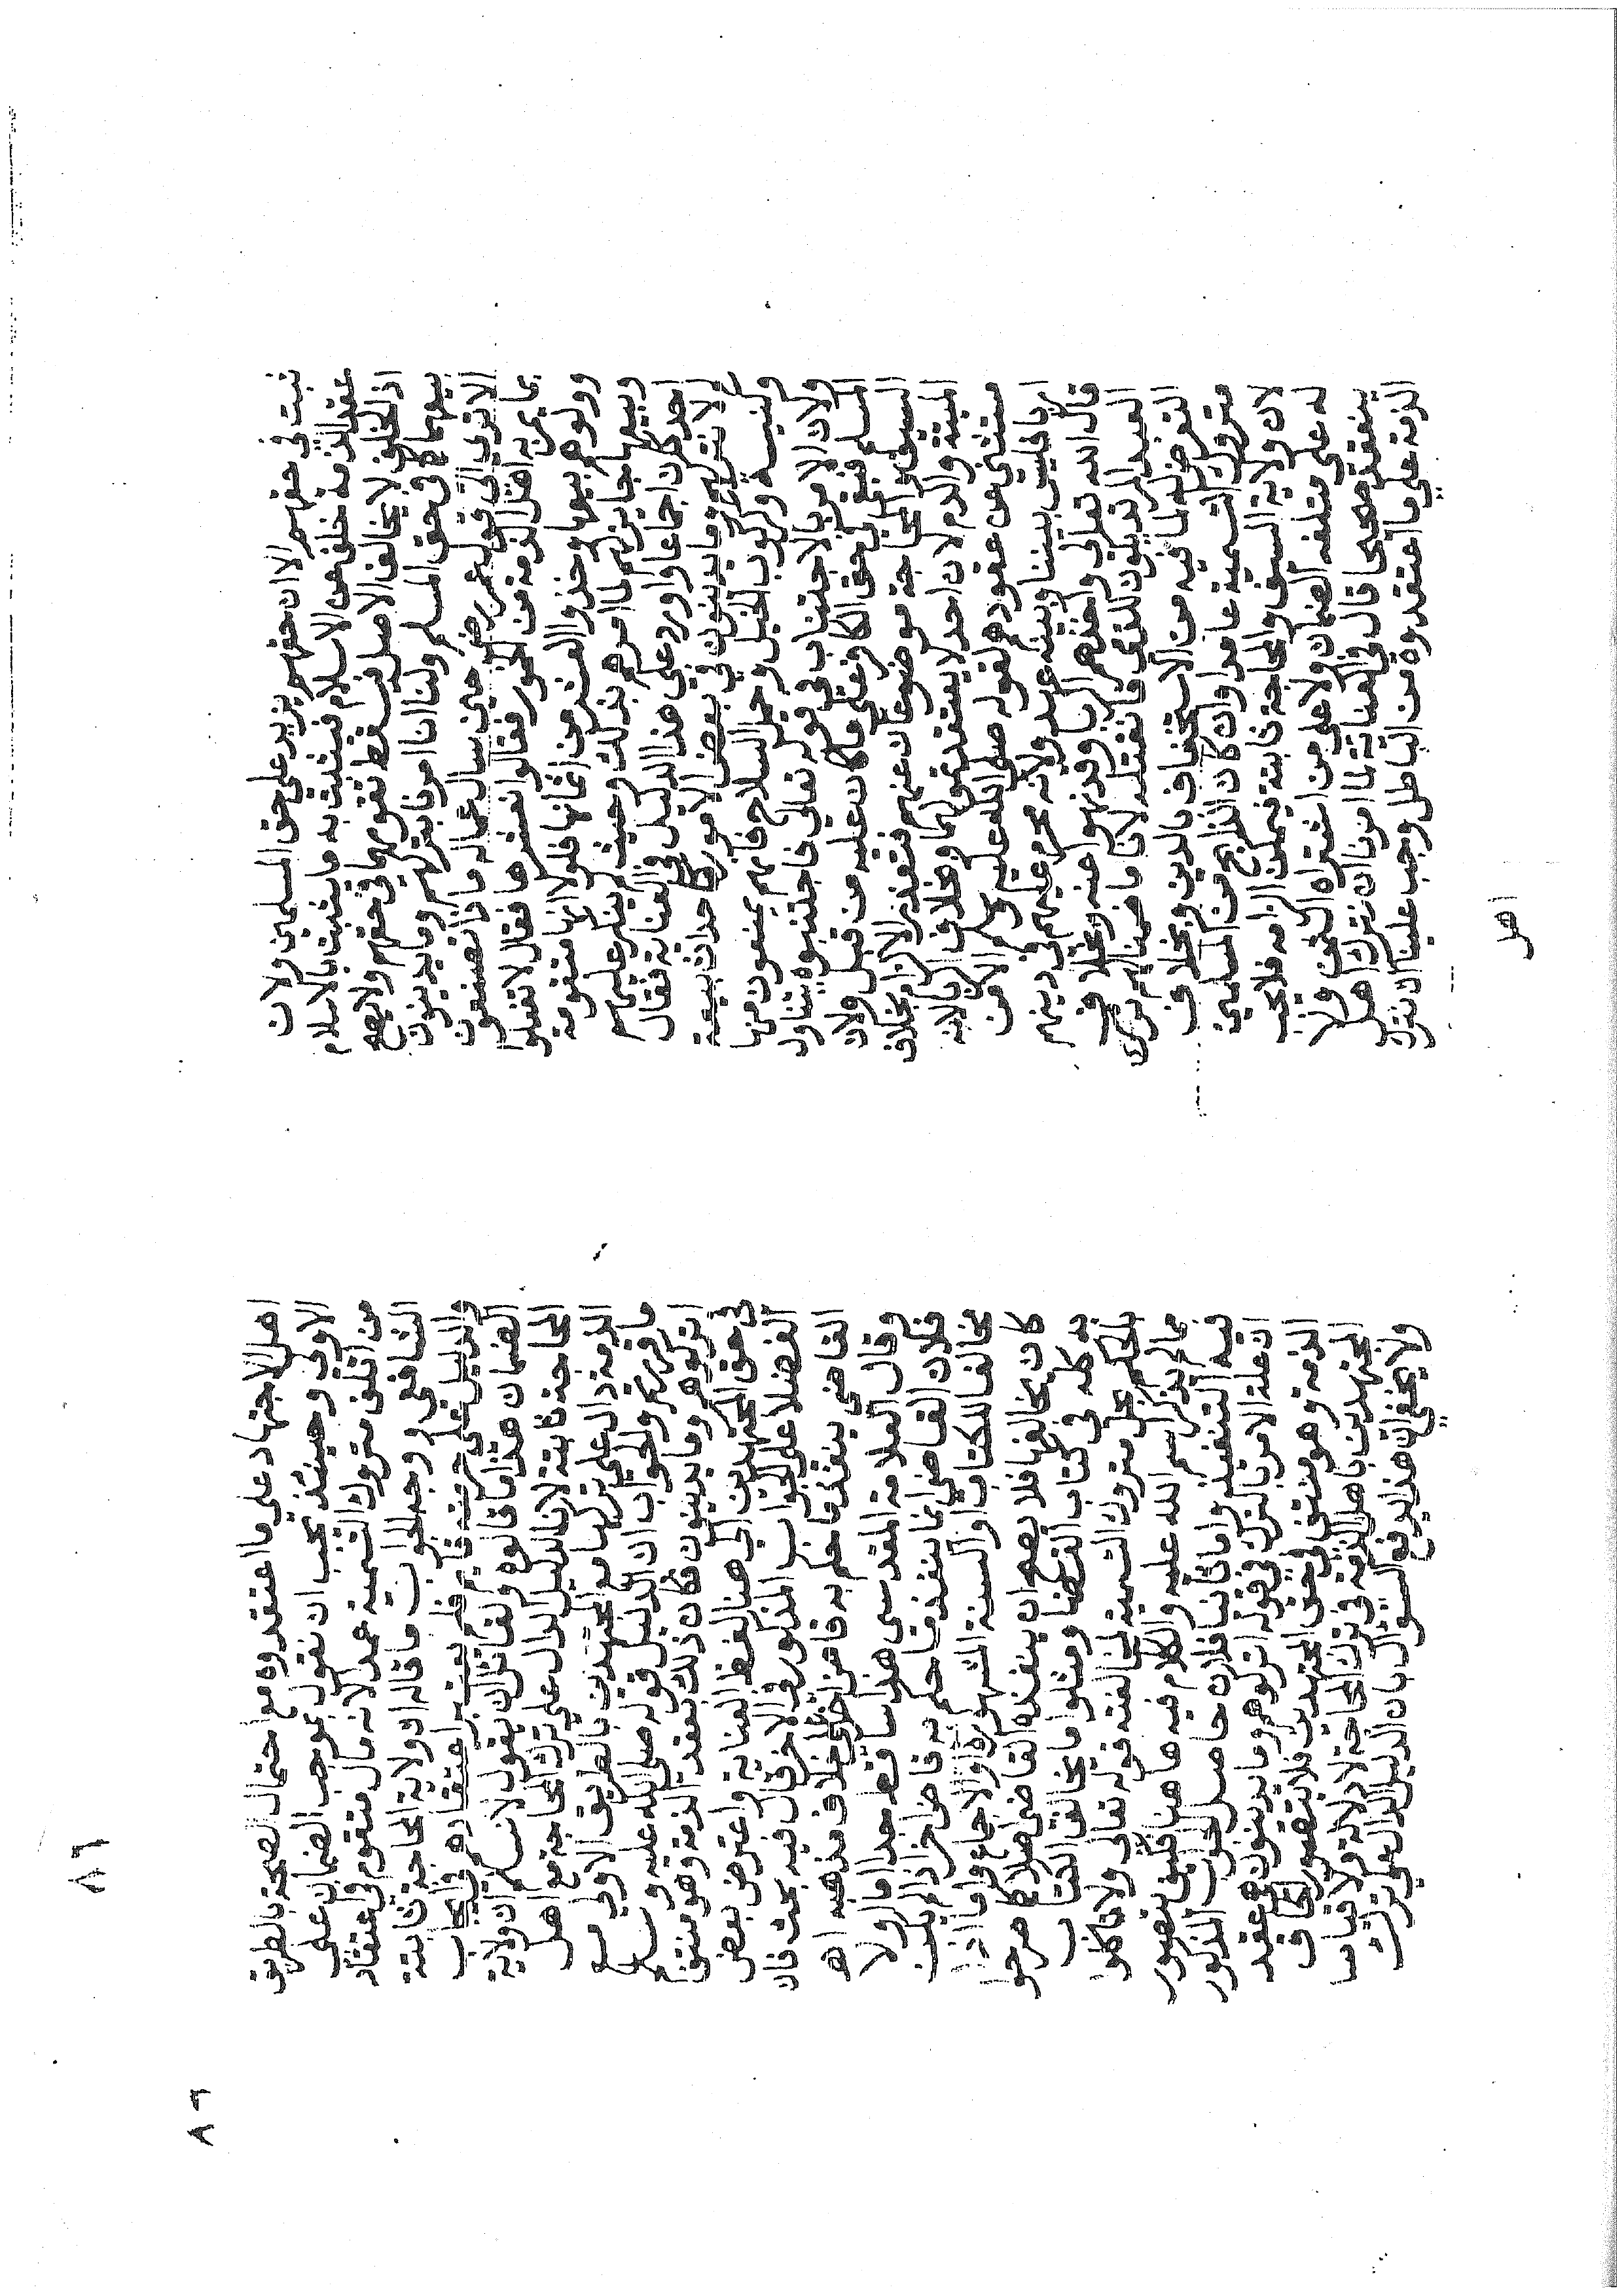 ثبت في حقهم الا ان حقهم يزيد على حق المسلمين ولان
عقد الذمة خلف عن الاسلام فيثبت به ما يثبت بالاسلام
اذ الخلف لا يخالف الاصل فيسقط تقومهما في حقهم ولا يصح
بيعهما كما في حق المسلم ولنا انا امرنا بتركهم وما يدينون
الا ترى الى قول عمر رضي حين سال عماله ماذا تصنعون
بما يمر به اهل الذمة من الخمور فقالوا نعشرها فقال لا تفعلوا
وولوهم بيعها وخذوا العشر من اثمانها فلولا انها متقومة
وبيعها جايز لهم لما امرهم بذلك وحيث لم ينكر عليهم
احد كان اجماعا واورد على هذا الدليل في العناية فقال
لا نتركهم وما يدينون في بعض الامور كاحداث بيعة
وكنيسة وركوب الخيل وحمل السلاح فانهم يمنعون منها
ولان الامر بالاجتناب في قوله تعالى فاجتنبوه يتناول
المسلم فيبقى في حق الكافر على ما كان عليه من قبل ولان
السيف والمحاجة موضوعان عنهم فتعذر الالزام بخلاف
الميتة والدم لان احد لا يعتقد تمولهما وبخلاف الربا لانه
مستثنى عن عقودهم لقوله صلى الله عليه وسلم الا من
اربا فليس بيننا وبينه عهد ولانه محرم عليهم في دينهم
قال الله تعالى واخذهم الربا وقد نهوا عنه وبخلاف
العبد المرتد يكون للذمي فانقتله لانا ما ضمنا لهم ترك
التعرض له لما فيه من الاستخفاف بالدين وبخلاف
متروك التسمية عامدا وان كان الذابح من المسلمين
لان ولاية السيف والمحاجة ثابتة فيمكن الزامه فلا يجب
له على متلفه الضمان ولا على من اشتراه الثمن ولا
ينعقد صحيحا قال في العناية لما امرنا ان نترك اهل
الذمة على ما اعتقدوه من الباطل وجب علينا ان نترك
اهل
اهل الاجتهاد على ما اعتقدوه مع احتمال الصحة بالطريق
الاولى وحينئذ يجب ان نقول بموجب الضمان على
من اتلف متروك التسمية عمدا لانه مال متقوم في اعتقاد
الشافعي ووجه الجواب ما قاله ان ولاية المحاجة ثابتة
والدليل على حرمته قايم فلم يعتبر اعتقادهم في ايجاب
الضمان هذا ما قالوه ولقائل ان يقول لا نسلم ان ولاية
المحاجة ثابتة لان الدليل الدال على ترك المحاجة مع اهل
الذمة دال على تركها مع المجتهدين بالطريق الاولى مع
ما قررتم والجواب ان الدليل قوله صلى الله عليه وسلم
اتركوهم وما يدينون فكان ذلك بعقد الذمة وهو منتف
في حق المجتهدين الى هنا لفظ العناية واعترض بعض
الفضلا على الجواب المذكور في الاخر قال فيه بحث فان
القاضي ينفذ ما حكم به قاض اخر خلاف مذهبه اه
وقال العلامة المقدسي هذا ساقط جدا اما اولا
فلان القاضي انما ينفذ ما حكم به قاض اخر اذا لم يكن
مخالفا للكتاب او السنة المشهورة او الاجماع واما اذا
كان مخالفا فلا يصح ان ينفذه القاضي اصلا كما صرحوا
به كله في كتاب القضا ومثلوا ما يخالف الكتاب
بالحكم بحل متروك التسمية لمخالفته قوله تعالى ولا تاكلوا
مما لم يذكر اسم الله عليه والكلام فيه ها هنا فكيف يتصور
فيه التنفيذ واما ثانيا فلان حاصل الجواب المذكور
ان علة الامر بالترك في قوله اتركوهم وما يدينون هي عقد
الذمة وهو منتف في حق المجتهدين فلا يتصور الحاق
المجتهدين باهل الذمة في ترك المحاجة لا دلالة ولا قياسا
ولا يخفى ان هذا يدفع السؤال بان الدليل الدال على ترك
٨٦
٨٦